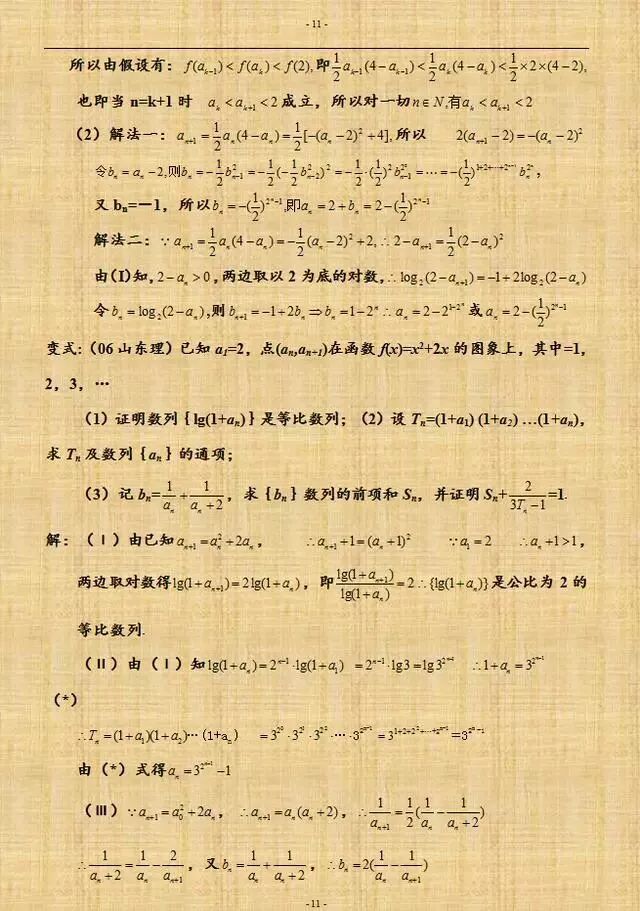 - 11 -
所以由假设有：f(a_{k-1})<f(a_k)<f(2),即\frac{1}{2}a_{k-1}(4-a_{k-1})<\frac{1}{2}a_k(4-a_k)<\frac{1}{2}×2×(4-2),
也即当 n=k+1 时 a_k<a_{k+1}<2 成立，所以对一切n∈N,有a_k<a_{k+1}<2
（2）解法一：a_{n+1}=\frac{1}{2}a_n(4-a_n)=\frac{1}{2}[-(a_n-2)^2+4],所以 2(a_{n+1}-2)=-(a_n-2)^2
令b_n=a_n-2,则b_n=-\frac{1}{2}b_{n-1}^2=-\frac{1}{2}(-\frac{1}{2}b_{n-2}^2)^2=-\frac{1}{2}·(\frac{1}{2})^2b_{n-1}^{2^2}=⋯=-(\frac{1}{2})^{1+2+⋯+2^{n-1}}b_n^{2^n}，
又 b_n=－1，所以b_n=-(\frac{1}{2})^{2^n-1},即a_n=2+b_n=2-(\frac{1}{2})^{2^n-1}
解法二：∵a_{n+1}=\frac{1}{2}a_n(4-a_n)=-\frac{1}{2}(a_n-2)^2+2,∴2-a_{n+1}=\frac{1}{2}(2-a_n)^2
由(I)知，2-a_n>0，两边取以 2 为底的对数，∴log_2(2-a_{n+1})=-1+2log_2(2-a_n)
令b_n=log_2(2-a_n),则 b_{n+1}=-1+2b_n⇒b_n=1-2^n∴a_n=2-2^{1-2^n}或a_n=2-(\frac{1}{2})^{2^n-1}
变式:（06 山东理）已知 a_1=2，点(a_n,a_{n+1})在函数 f(x)=x^2+2x 的图象上，其中=1，
2，3，…
（1）证明数列｛lg(1+a_n)｝是等比数列；（2）设 T_n=(1+a_1) (1+a_2) …(1+a_n)，
求 T_n 及数列｛a_n｝的通项；
（3）记 b_n=\frac{1}{a_n}+\frac{1}{a_n+2}，求｛b_n｝数列的前项和 S_n，并证明 S_n+\frac{2}{3T_n-1}=1.
解:（Ⅰ）由已知a_{n+1}=a_n^2+2a_n， ∴a_{n+1}+1=(a_n+1)^2 ∵a_1=2 ∴a_n+1>1，
两边取对数得lg(1+a_{n+1})=2lg(1+a_n)，即\frac{lg(1+a_{n+1})}{lg(1+a_n)}=2∴{lg(1+a_n)}是公比为 2 的
等比数列.
（Ⅱ）由（Ⅰ）知lg(1+a_n)=2^{n-1}·lg(1+a_1) =2^{n-1}·lg3=lg3^{2^{n-1}} ∴1+a_n=3^{2^{n-1}}
(*)
∴T_n=(1+a_1)(1+a_2)…(1+a_n) =3^{2^0}·3^{2^1}·3^{2^2}·⋯·3^{2^{n-1}}=3^{1+2+2^2+⋯+2^{n-1}}=3^{2^n-1}
由（*）式得a_n=3^{2^{n-1}}-1
（Ⅲ）∵a_{n+1}=a_0^2+2a_n， ∴a_{n+1}=a_n(a_n+2)，∴\frac{1}{a_{n+1}}=\frac{1}{2}(\frac{1}{a_n}-\frac{1}{a_n+2})
∴\frac{1}{a_n+2}=\frac{1}{a_n}-\frac{2}{a_{n+1}}，又b_n=\frac{1}{a_n}+\frac{1}{a_n+2}，∴b_n=2(\frac{1}{a_n}-\frac{1}{a_{n+1}})
- 11 -